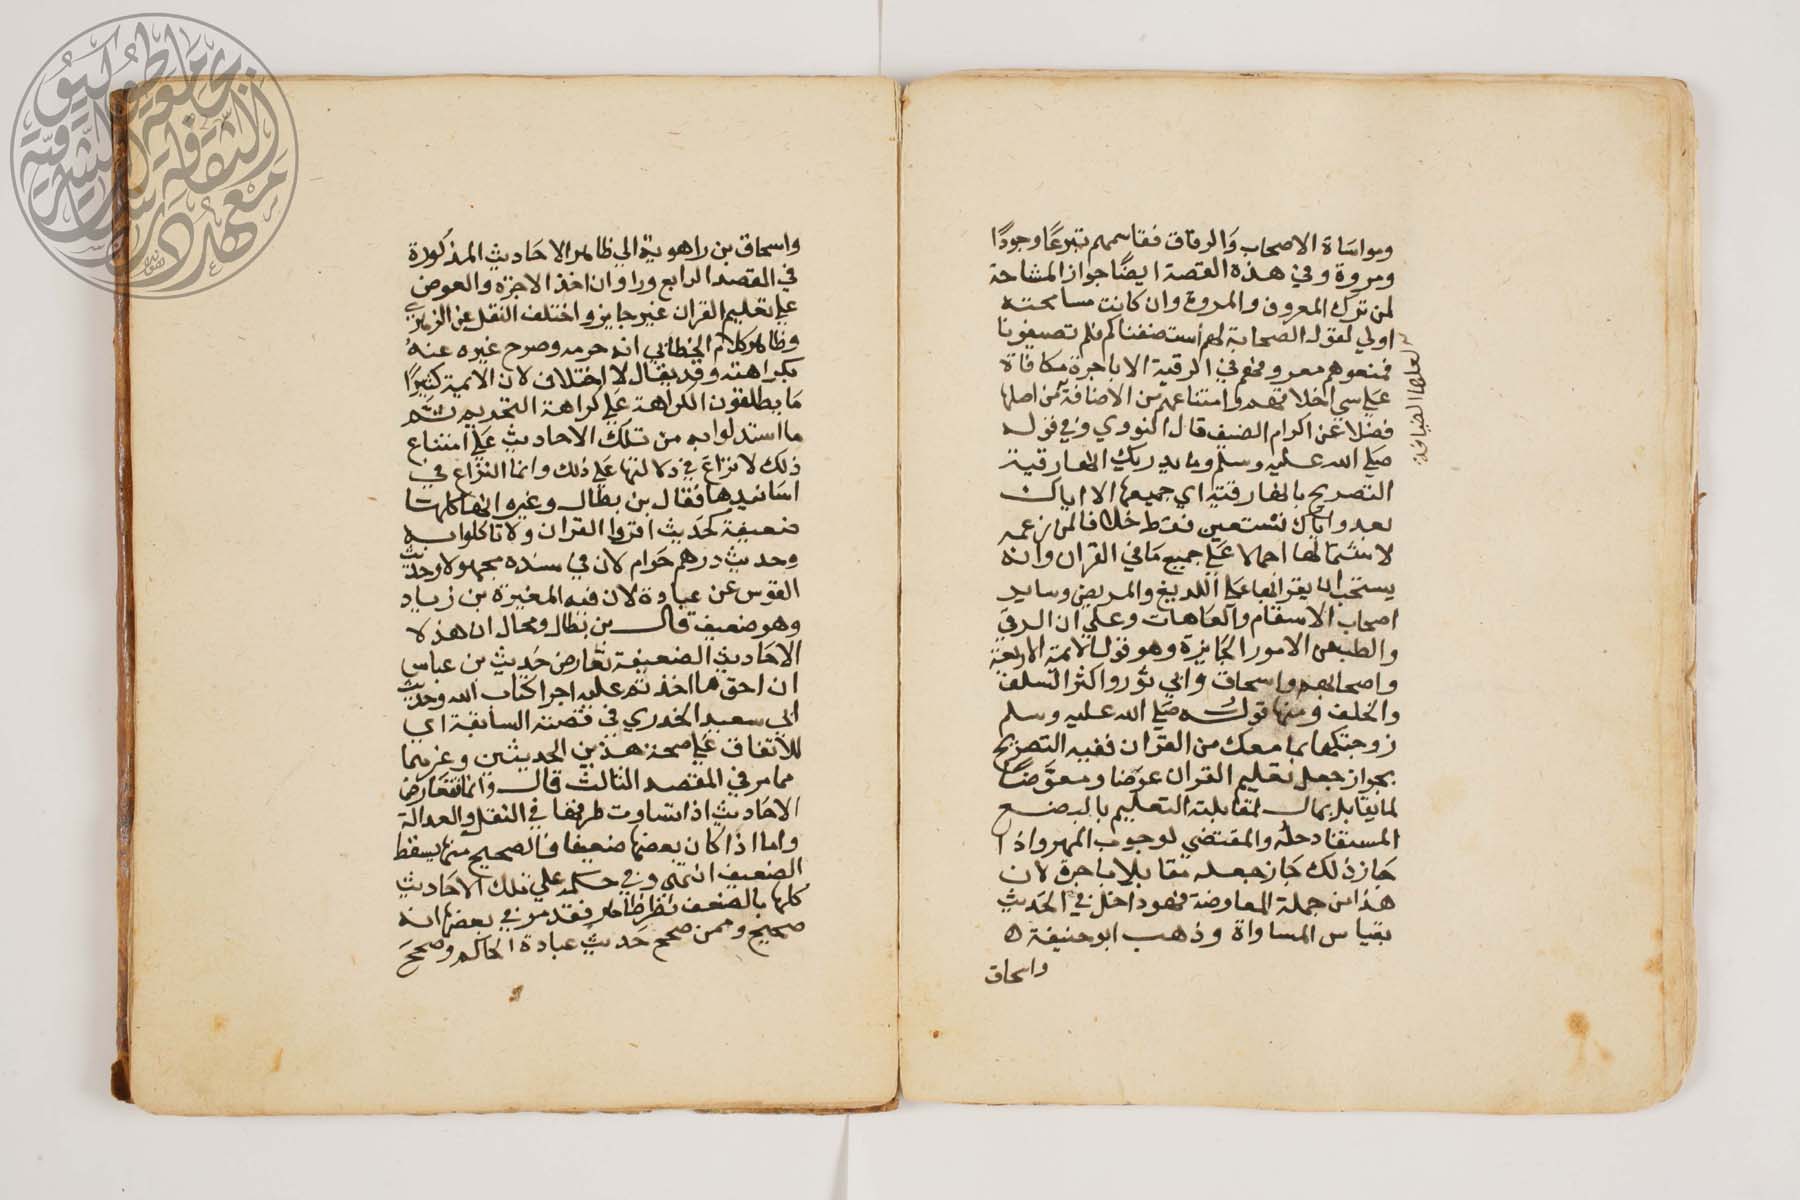 ومواساة الاصحاب والرفاق فقاسمهم تبرعا وجودًا
ومروة وفي هذه القصة ايضًا جواز المشاحة
لمن ترك المعروف والمروة وان كانت مسامحته
اولي لقول الصحابة لهم استضفناكم فلم تضيفونا
فمنعوهم معروفهم في الرقية الا باجرة مكافاة
علي سي اخلاقهم وامتناعهم من الاضافة من اصلها
لعلها الضيافة
فضلا عن اكرام الضيف قال النووي وفي قوله
صلي الله عليه وسلم وما يدريك انها رقية
التصريح بانها رقية اي جميعها الا اياك
نعبد واياك نستعين فقط خلافا لمن زعمه
لاشتمالها اجمالا علي جميع ما في القران وانه
يستحب ان يقرا بها علي اللديغ والمريض وساير
اصحاب الاسقام والعاهات وعلي ان الرقي
والطب من الامور الجايزة وهو قول الايمة الاربعة
واصحابهم واسحاق وابي ثور واكثر السلف
والخلف ومنها قوله صلي الله عليه وسلم
زوجتكها بما معك من القران ففيه التصريح
بجواز جعل تعليم القران عوضا ومعوَّضًا
لما يقابل بمال لمقابلته التعليم بالبضع
المستفاد حله والمقتضي لوجوب المهر واذا
جاز ذلك جاز جعله مقابلا باجرة لان
هذا من جملة المعاوضة فهو داخل في الحديث
بقياس المساواة وذهب ابو حنيفة ه
واسحاق
واسحاق بن راهوية الي ظاهر الاحاديث المذكورة
في المقصد الرابع وراوا ان اخذ الاجرة والعوض
علي تعليم القران غير جايز واختلف النقل عن الزهري
وظاهر كلام الخطابي انه حرمه وصرح غيره عنه
بكراهته وقد يقال لا اختلاف لان الايمة كثيرًا
ما يطلقون الكراهة علي كراهة التحريم ثم
ما استدلوا به من تلك الاحاديث علي امتناع
ذلك لا نزاع في دلالتها علي ذلك وانما النزاع في
اسانيدها فقال بن بطال وغيره انها كلها
ضعيفة كحديث اقروا القران ولا تاكلوا به
وحديث درهم حرام لان في سنده مجهولا وحديث
القوس عن عبادة لان فيه المغيرة بن زياد
وهو ضعيف قال بن بطال ومحال ان هذه
الاحاديث الضعيفة تعارض حديث بن عباس
ان احق ما اخذتم عليه اجرا كتاب الله وحديث
ابي سعيد الخدري في قصته السابقة اي
للاتفاق علي صحة هذين الحديثين وغيرهما
مما مر في المقصد الثالث قال وانما تتعارض
الاحاديث اذا تساوت طرقها في النقل والعدالة
واما اذا كان بعضها ضعيفا فالصحيح منها يسقط
الضعيف انتهي وفي حكمه علي تلك الاحاديث
كلها بالضعف نظر ظاهر فقد مر في بعضها انه
صحيح وممن صحح حديث عبادة الحاكم وصحح